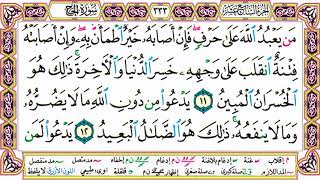 الجزء السابع عشر ٣٣٣ سورة الحج
مَن يَعْبُدُ اللَّهَ عَلَىٰ حَرْفٍ ۖ فَإِنْ أَصَابَهُۥ خَيْرٌ ٱطْمَأَنَّ بِهِۦ ۖ وَإِنْ أَصَابَتْهُ
فِتْنَةٌ ٱنقَلَبَ عَلَىٰ وَجْهِهِۦ خَسِرَ ٱلدُّنْيَا وَٱلْآخِرَةَ ۚ ذَٰلِكَ هُوَ
ٱلْخُسْرَانُ ٱلْمُبِينُ ١١ يَدْعُوا۟ مِن دُونِ ٱللَّهِ مَا لَا يَضُرُّهُۥ
وَمَا لَا يَنفَعُهُۥ ۚ ذَٰلِكَ هُوَ ٱلضَّلَٰلُ ٱلْبَعِيدُ ١٢ يَدْعُوا۟ لَمَن